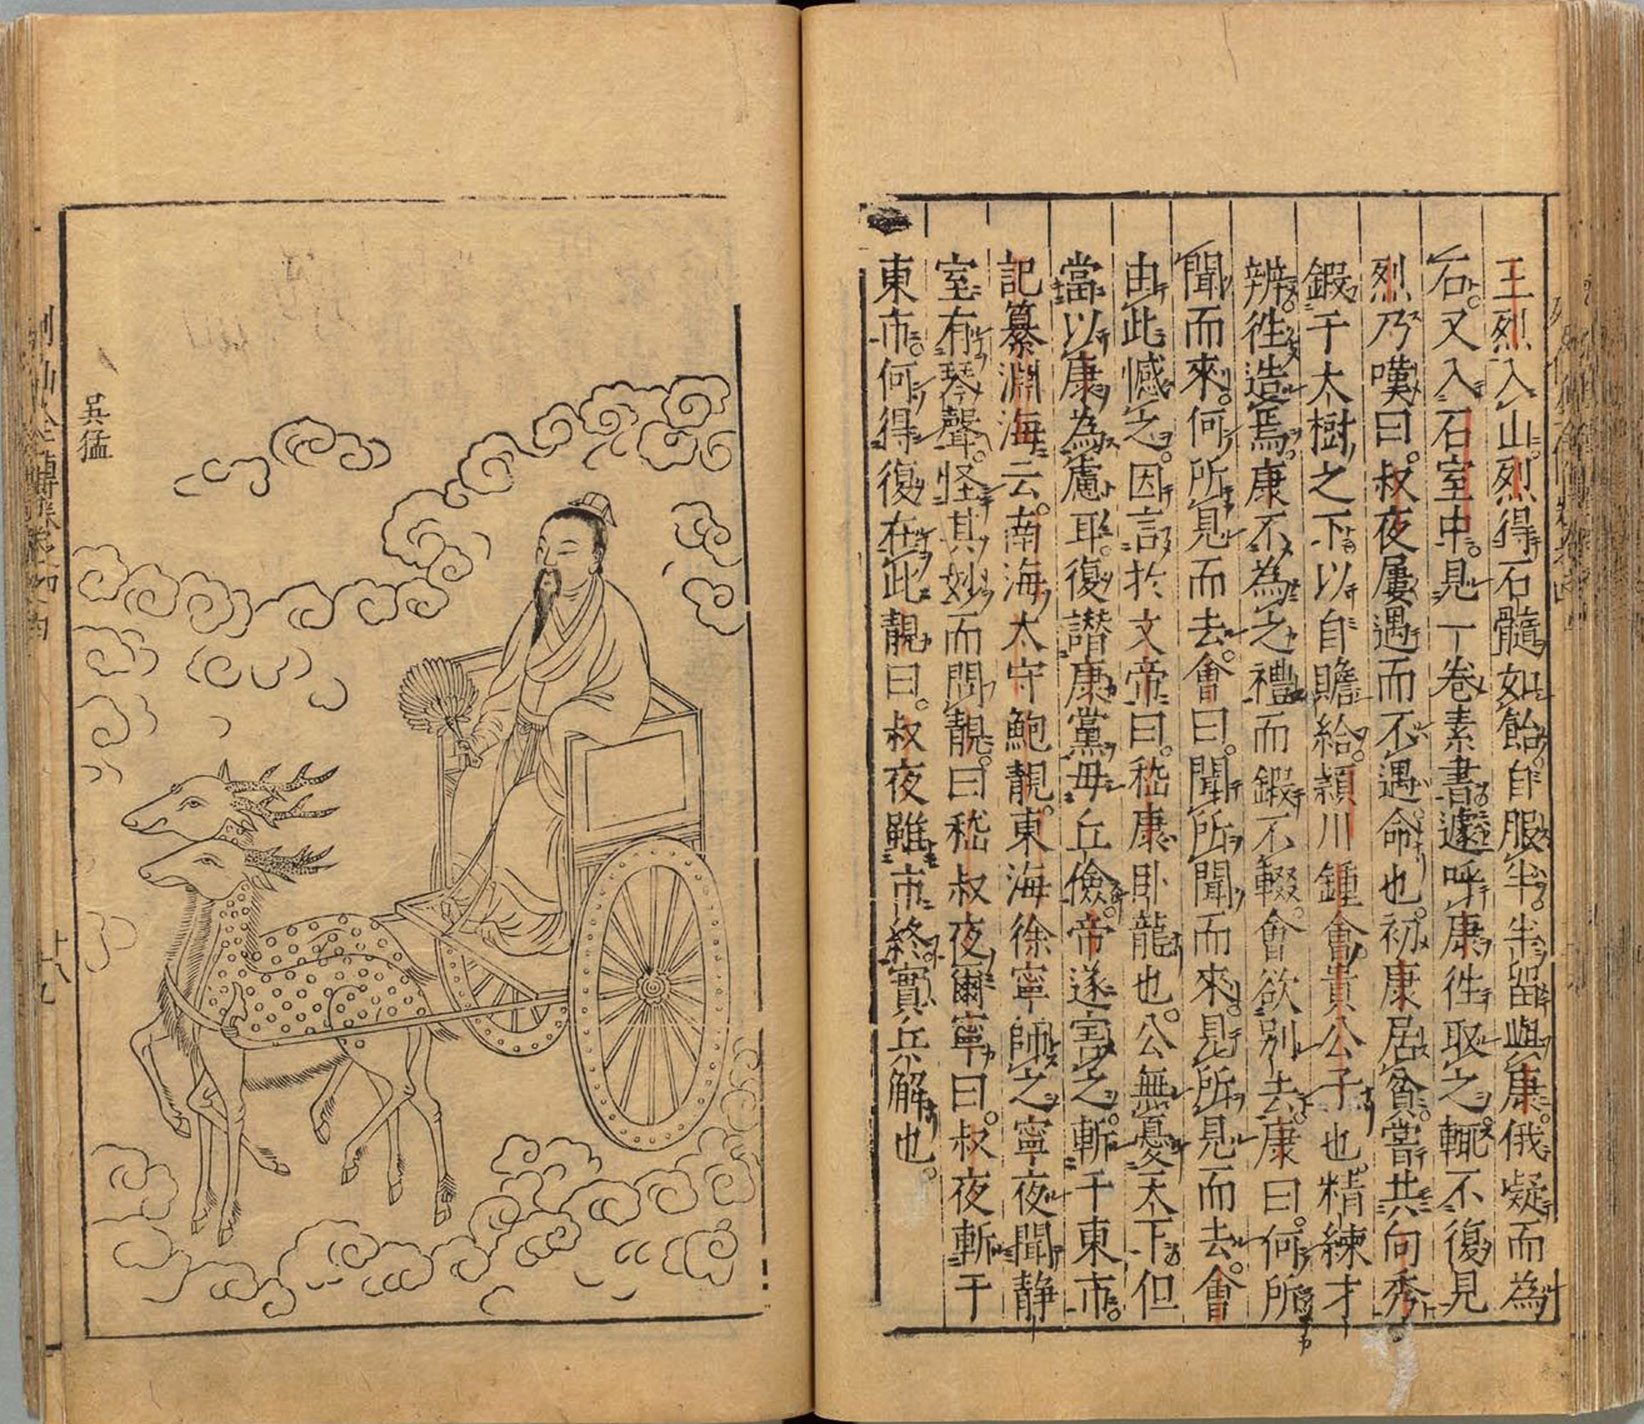 王烈入山烈得石髓如飴。自服半。半留與康。俄凝而為
石。又入石室中。見一卷素書遽呼康徃取之。輙不復見
烈乃嘆曰。叔夜屢遇而不遇。命也。初康居貧。嘗共向秀
鍛于大樹之下以自贍給。潁川鍾會。貴公子也。精練才
辨。徃造焉。康不為之禮而鍛不輟。會欲別去。康曰。何所
聞而來。何所見而去。會曰。聞所聞而來。見所見而去。會
由此憾之。因言於文帝曰。嵇康卧龍也。公無憂天下但
當以康為慮耳。復譖康黨毋丘儉。帝遂害之。斬于東市。
記纂淵海云。南海太守鮑靚。東海徐寧師之。寧夜聞静
室有琴聲。怪其妙而問靚。曰嵇叔夜。爾寧曰。叔夜斬于
東市。何得復在此靚曰。叔夜雖市終實兵解也。
吳猛